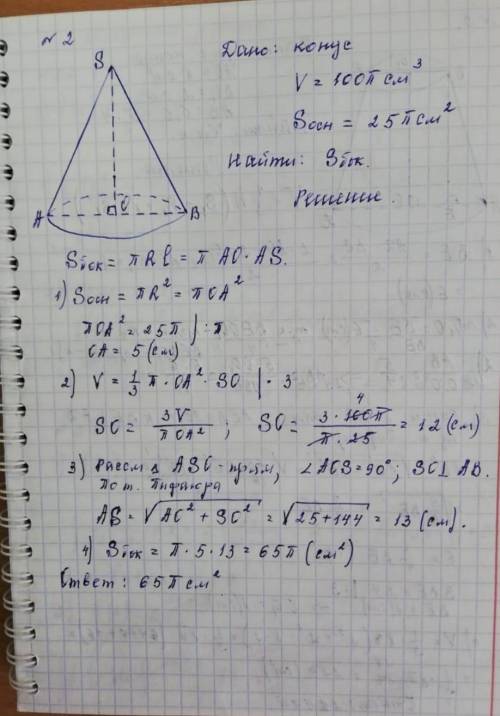 № 2
Дано: конус
V = 100π см³
Sосн = 25π см²
Найти: Sбок.
Решение.
S
A
O
B
Sбок = πRl = π AO · AS.
1) Sосн = πR² = πOA²
πOA² = 25π | : π
OA = 5 (см)
2) V = 1/3 π · OA² · SO | · 3
SO = 3V / πOA² ; SO = 3 · 100π / π · 25 = 12 (см)
4
3) Рассм Δ ASO - прям, ∠AOS = 90° ; SO ⊥ AB.
По т. Пифагора
AS = √AO² + SO² = √25 + 144 = 13 (см).
4) Sбок = π · 5 · 13 = 65π (см²)
Ответ: 65π см²